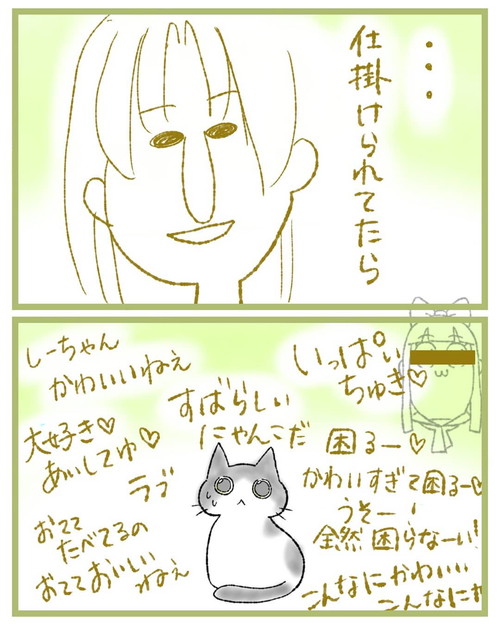 ・・・
仕掛けられてたら
いっぱい
ちゅき♡
しーちゃん
かわいいねぇ
すばらしい
にゃんこだ
大好き♡
あいしてゆ♡
ラブ
困るー♡
かわいすぎて困るー♡
うそー!
全然困らなーい!
おてて
たべてるの
おてておいしいねぇ
こんなにかわいい
こんなにゃ